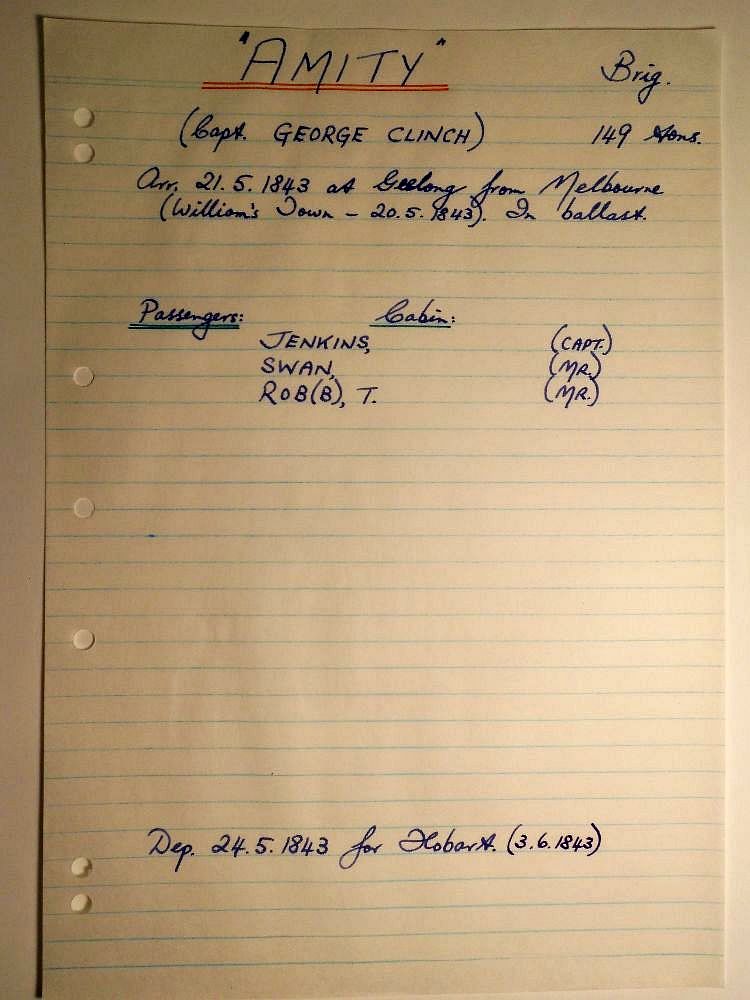 "AMITY" Brig.
(Capt. GEORGE CLINCH) 149 tons.
Arr. 21.5.1843 at Geelong from Melbourne
(William's Town – 20.5.1843). In ballast.
Passengers: Cabin:
JENKINS, (CAPT.)
SWAN, (MR.)
ROB(B), T. (MR.)
Dep. 24.5.1843 for Hobart. (3.6.1843)